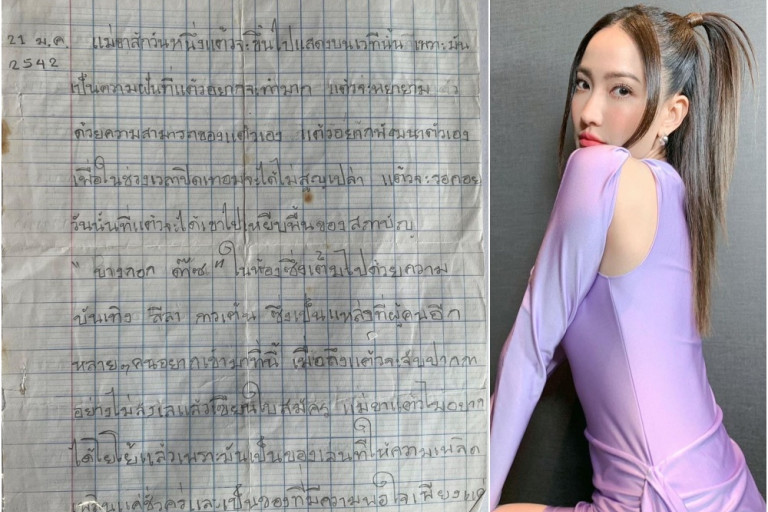 21 ม.ค. 2542
แม่ขาสักวันหนึ่งแต้วจะขึ้นไปแสดงบนเวทีนั้น เพราะมัน
เป็นความฝันที่แต้วอยากจะทำมาก แต้วจะพยายาม ๆ
ด้วยความสามารถของแต้วเอง แต้วอยากพัฒนาตัวเอง
เพื่อในช่วงเวลาปิดเทอมจะได้ไม่สูญเปล่า แต้วจะรอคอย
วันนั้นที่แต้วจะได้เข้าไปเหยียบพื้นของสถาบัญ
"บางกอก ด๊๊านซ์" ในห้องซึ่งเต็มไปด้วยความ
บันเทิง ลีลา การเต้น ซึ่งเป็นแหล่งที่ผู้คนอีก
หลายๆคนอยากเข้ามาที่นี่ เมื่อถึงแต้วจะจับปากกา
อย่างไม่ลังเลแล้วเขียนใบสมัคร แม่ขาแต้วไม่อยาก
ได้โยโย้แล้วเพราะมันเป็นของเล่นที่ให้ความเพลิด
เพลินแค่ชั่วครู่และเป็นของที่มีความพอใจเพียงแค่